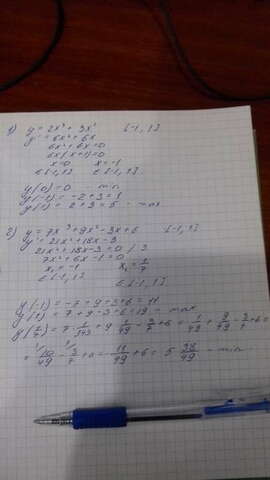 1) y = 2x³ + 3x² [-1, 1]
y' = 6x² + 6x
6x² + 6x = 0
6x(x+1) = 0
x=0 x=-1
∈ [-1, 1] ∈ [-1, 1]
y(0) = 0 min
y(-1) = -2+3 = 1
y(1) = 2+3 = 5 - max
2) y = 7x³ + 9x² - 3x + 6 [-1, 1]
y' = 21x² + 18x - 3
21x² + 18x - 3 = 0 / 3
7x² + 6x - 1 = 0
x₁ = -1 x₂ = 1/7
∈ [-1, 1] ∈ [-1, 1]
y(-1) = -7+9+3+6 = 11
y(1) = 7+9-3+6 = 19 - max
y(1/7) = 7·1/343 + 9·1/49 - 3/7 + 6 = 1/49 + 9/49 - 3/7 + 6 =
= 10/49 - 3/7 + 6 = - 11/49 + 6 = 5 38/49 - min